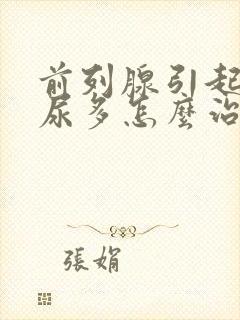 前列腺引起
尿多怎麼治
張娟